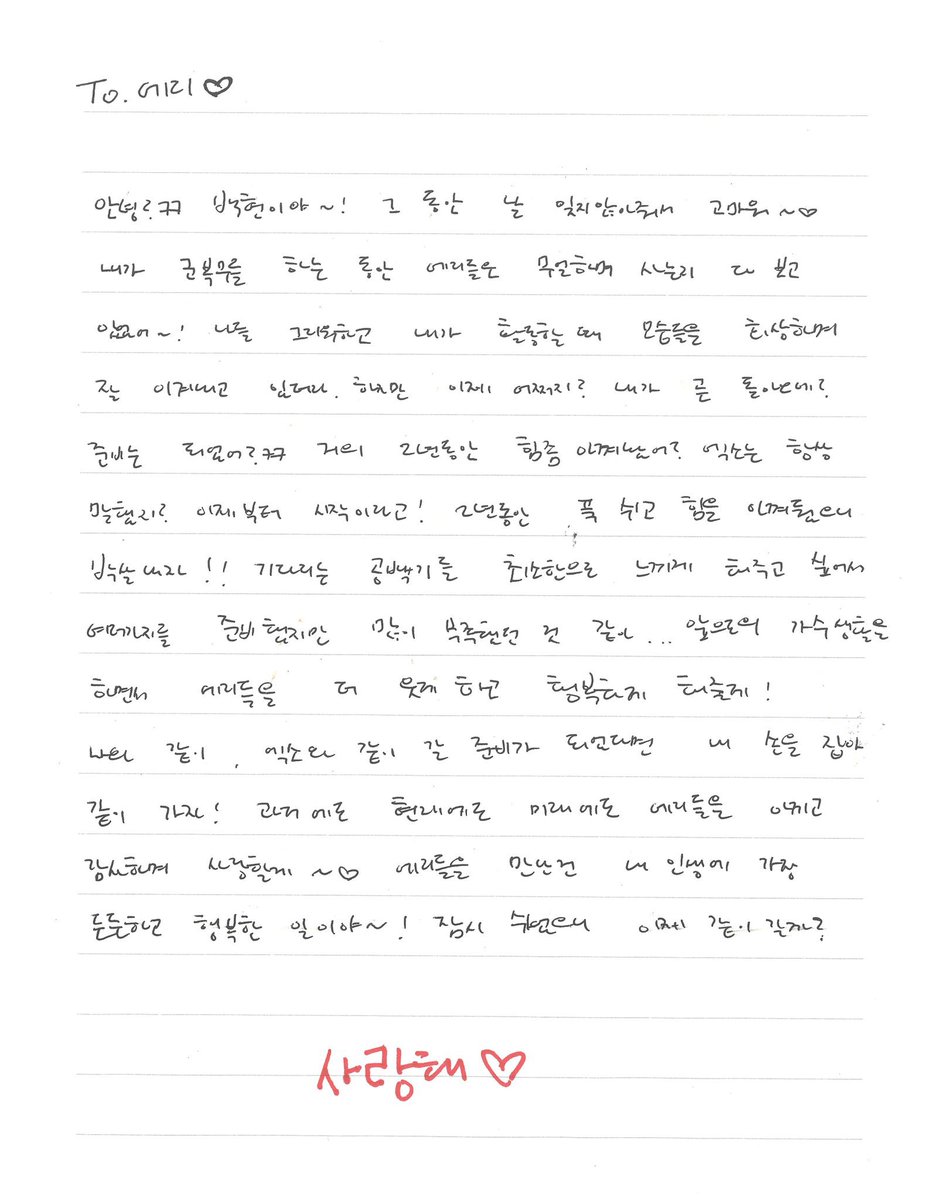 To. 에리♡
안녕?ㅋㅋ 백현이야~! 그 동안 날 잊지않아줘서 고마워~♡
내가 군복무를 하는 동안 에리들은 무얼하며 사는지 다 보고
있었어~! 나를 그리워하고 내가 활동할 때 모습들을 회상하며
잘 이겨내고 있더라. 하지만 이제 어쩌지? 내가 곧 돌아오네?
준비는 되었어?ㅋㅋ 거의 2년동안 힘좀 아껴놨어? 엑소는 항상
말했지? 이제부터 시작이라고! 2년동안 푹 쉬고 힘을 아껴뒀으니
박살내자!! 기다리는 공백기를 최소한으로 느끼게 해주고 싶어서
여러가지를 준비했지만 많이 부족했던 것 같아... 앞으로의 가수생활을
하면서 에리들을 더 웃게 하고 행복하게 해줄게!
나와 같이, 엑소와 같이 갈 준비가 되었다면 내 손을 잡아
같이 가자! 과거에도 현재에도 미래에도 에리들을 아끼고
감사하며 사랑할게~♡ 에리들을 만난건 내 인생에 가장
든든하고 행복한 일이야~! 잠시 쉬었으니 이제 같이 갈까?
사랑해♡